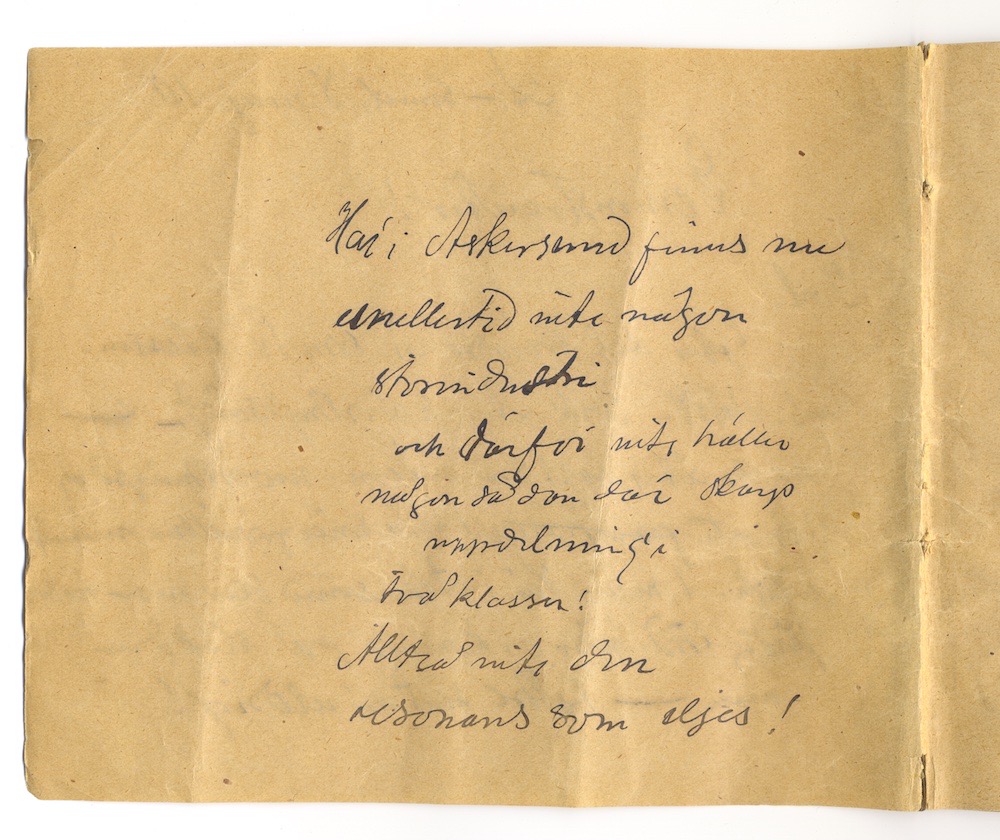 Här i Askersund finns nu
emellertid inte någon
storindustri
och därför inte håller
någon sådan där skarp
uppdelning i
två klasser!
Alltså inte den
resonans som eljes!